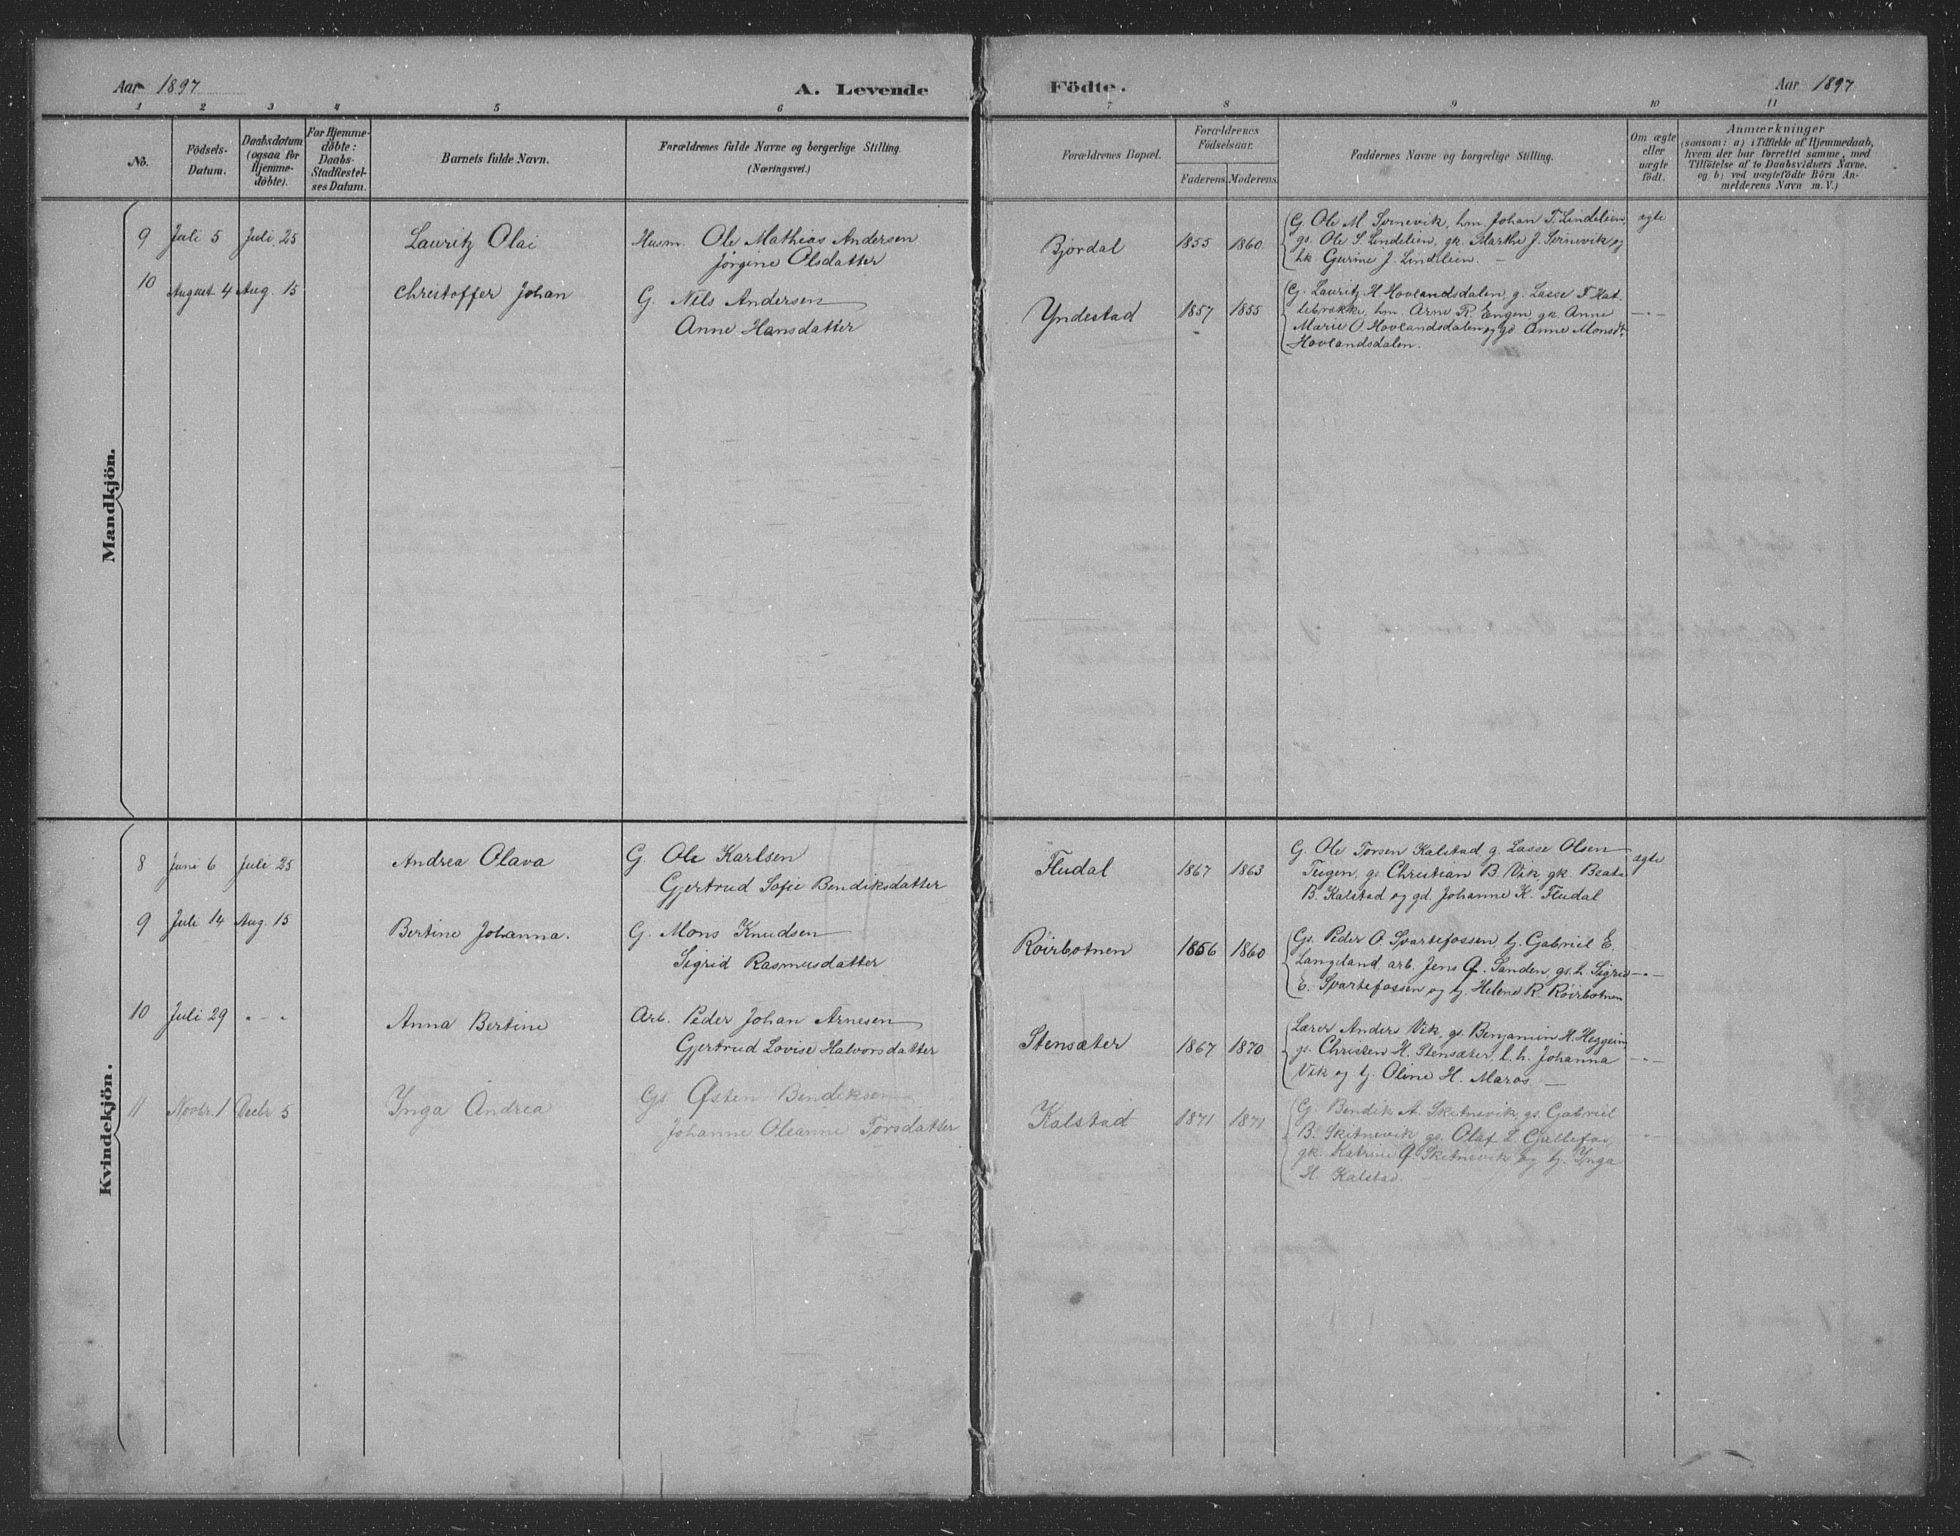 Aar 1897
A. Levende
Födte.
Aar 1897
1 2 3 4 5 6 7 8 9 10 11
No.
Födsels-
Datum.
Daabsdatum
(ogsaa for
Hjemme-
döbte).
For Hjemme-
döbte:
Daabs-
Stadfæstel-
ses Datum.
Barnets fulde Navn.
Forældrenes fulde Navne og borgerlige Stilling.
(Næringsvei.)
Forældrenes Bopæl.
Forældrenes
Födselsaar.
Faderens. Moderens.
Faddernes Navne og borgerlige Stilling.
Om ægte
eller
uægte
födt.
Anmærkninger
(saasom: a) i Tilfælde af Hjemmedaab,
hvem der har forrettet samme, med
Tilföielse af to Daabsvidners Navne,
og b) ved uægtefödte Börn An-
melderens Navn m. V.)
Mandkjön.
9 Juli 5 Juli 25 Lauritz Olai Husm. Ole Mathias Andersen
Jørgine Olsdatter
Bjordal 1855 1860
G. Ole M. Sørnevik, hm Johan T. Lindeleien,
gs. Ole S. Lindelien, gk. Marthe J. Sørnevik og
hk Gurine J. Lindelien. –
ægte
10 August 4 Aug. 15 Christoffer Johan G. Nils Andersen
Anne Hansdatter
Yndestad 1857 1855
G. Lauritz H. Hovlandsdalen, g. Lasse T. Hat-
lebrække, hm Arne R. Engen, gk. Anne
Marie O. Hovlandsdalen og gd Anne Monsdt.
Hovlandsdalen.
– " –
Kvindekjön.
8 Juni 6 Juli 25 Andrea Olava G. Ole Karlsen
Gjertrud Sofie Bendiksdatter
Fludal 1867 1863
G. Ole Torsen Kalstad, g. Lasse Olsen
Teigen, gs. Christian B. Vik, gk. Beate
B. Kalstad og gd. Johanne K. Fludal
ægte
9 Juli 14 Aug. 15 Bertine Johanna. G. Mons Knudsen
Sigrid Rasmusdatter
Roirbotnen 1856 1860
Gs. Peder O. Svartefossen, tj. Gabriel E.
Langeland, arb. Jens O. Sanden, gs. h. Sigrid
E. Svartefossen og tj. Helene R. Roirbotnen
– " –
10 Juli 29 " – " Anna Bertine Arb. Peder Johan Arnesen
Gjertrud Lovise Halvorsdatter
Stensæter 1867 1870
Lærer Anders Vik, gs. Benjamin H. Heggein,
gs. Christen H. Stensæter, l. h. Johanna
Vik og tj. Oline H. Maros. –
– " –
11 Novbr. 1 Decbr 5 Inga Andrea Gs. Østen Bendiksen
Johanne Oleanne Torsdatter
Kalstad 1871 1871
G. Bendik A. Skitnevik, gs. Gabriel
B. Skitnevik, gs. Olaf L.
gk. Katrine O. Skitnevik og tj. Inga
H. Kalstad.
– " –